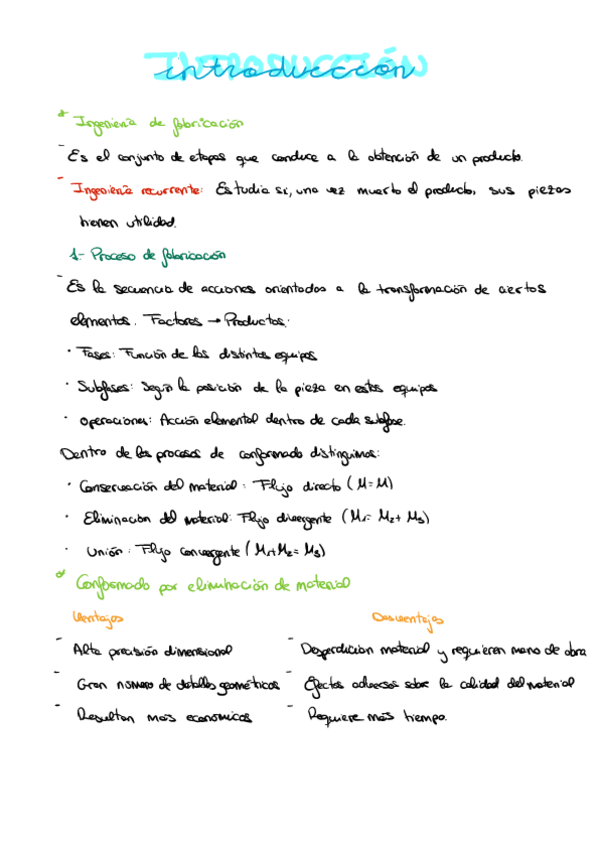 INTRODUCCIÓN
introducción
* Ingeniería de fabricación
- Es el conjunto de etapas que conduce a la obtención de un producto.
- Ingeniería recurrente: Estudia si, una vez muerto el producto, sus piezas
tienen utilidad.
1- Proceso de fabricación
- Es la secuencia de acciones orientadas a la transformación de ciertos
elementos. Factores → Productos.
· Fases: Función de los distintos equipos
· Subfases: Según la posición de la pieza en estos equipos
· Operaciones: Acción elemental dentro de cada subfase.
Dentro de los procesos de conformado distinguimos:
· Conservación del material: Flujo directo (M=M)
· Eliminación del material: Flujo divergente (M₁= M₂+ M₃)
· Unión: Flujo convergente (M₁+M₂= M₃)
* Conformado por eliminación de material
Ventajas Desventajas
- Alta precisión dimensional - Desperdician material y requieren mano de obra
- Gran número de detalles geométricos - Efectos adversos sobre la calidad del material
- Resultan más económicos - Requiere más tiempo.